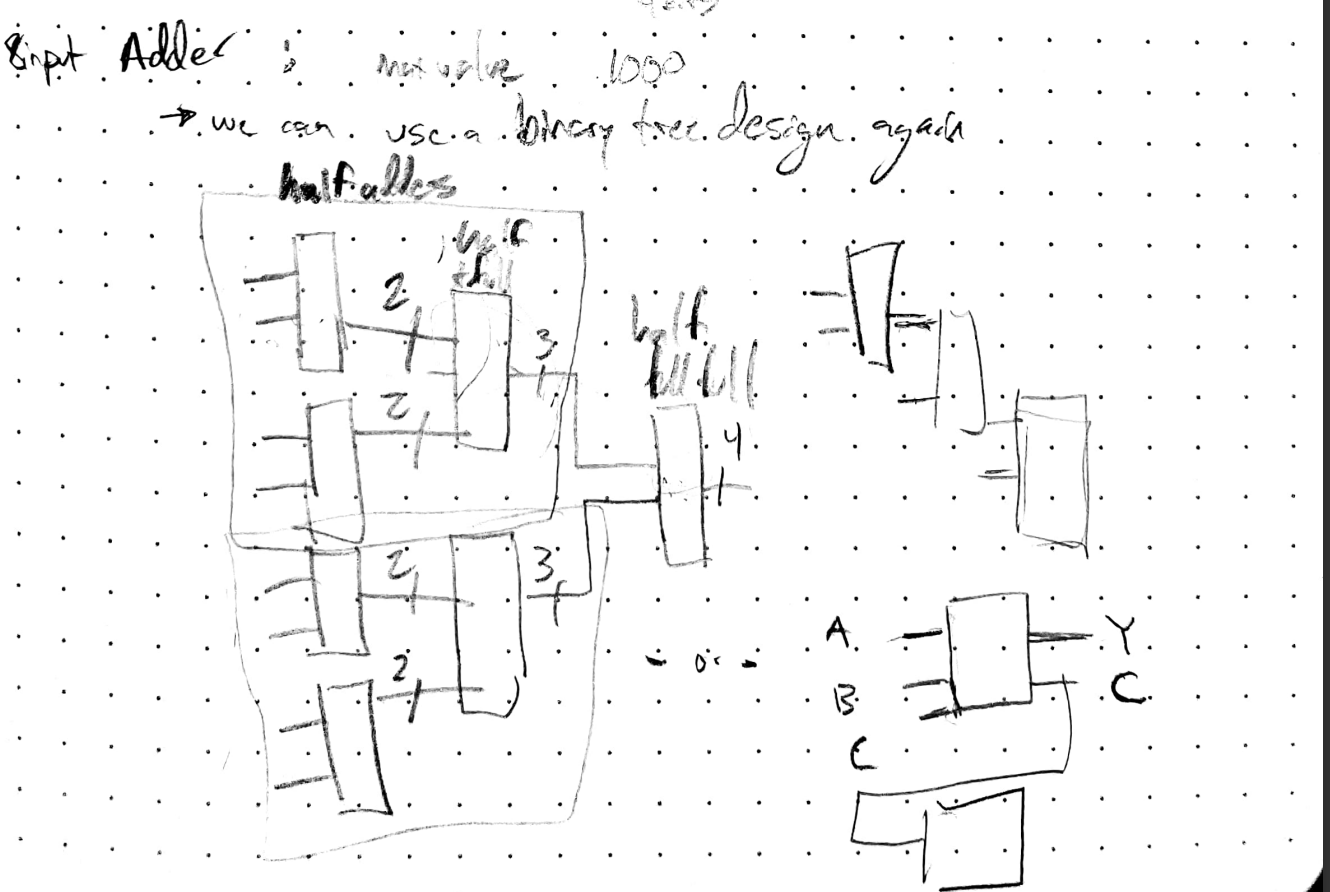 8input Adder : max value 1000
→ we can use a binary tree design again
half adders
half
+ full
2
3
half
full full
2
4
2
3
2
- or -
A
Y
B
C
C